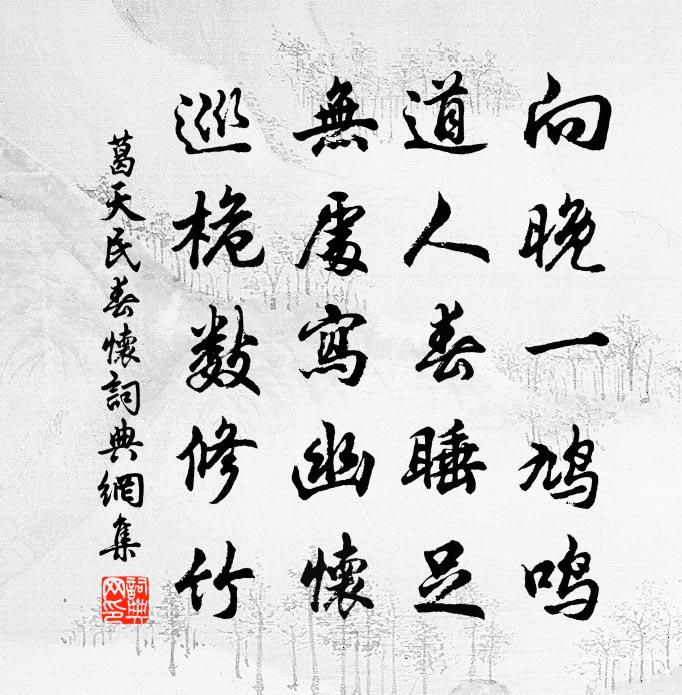 向晚一鳩鳴
道人春睡足
無處寫幽懷
巡桅數修竹
葛天民春懷詞典網集
詞典網印